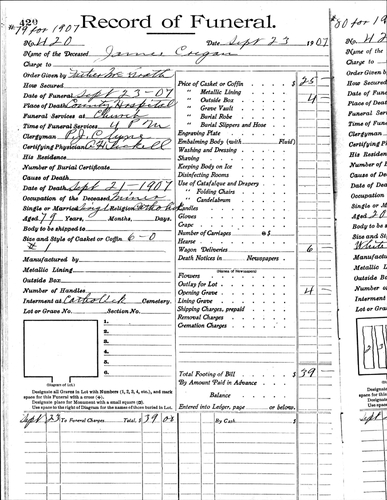 420
#79 for 1907
Record of Funeral.
No. 420 Date Sept 23 1907
Name of the Deceased James Cugan
Charge to
Order Given by
How Secured
Date of Funeral Sept 23-07
Place of Death County Hospital
Funeral Services at Church
Time of Funeral Services
Clergyman
Certifying Physician
His Residence
Number of Burial Certificate
Cause of Death
Date of Death Sept 21-1907
Occupation of the Deceased Miner
Single or Married Single Religion Catholic
Aged 79 Years, Months, Days.
Body to be shipped to
Size and Style of Casket or Coffin 6-0
#1
Manufactured by
Metallic Lining
Outside Box
Number of Handles
Interment at Catholick Cemetery.
Lot or Grave No. Section No.
1.
2.
3.
4.
5.
6.
(Diagram of Lot.)
Designate all Graves in Lot with Numbers (1, 2, 3, 4, etc.), and mark
space for this Funeral with a cross (+).
Designate place for Monument with a small square (□).
Use space to the right of Diagram for the names of those buried in Lot.
Price of Casket or Coffin $ 25 -
" Metallic Lining
" Outside Box 4 -
" Grave Vault
" Burial Robe
" Burial Slippers and Hose
Engraving Plate
Embalming Body (with Fluid)
Washing and Dressing
Shaving
Keeping Body on Ice
Disinfecting Rooms
Use of Catafalque and Drapery
" Folding Chairs
" Candelabrum
Handles
Gloves
Crape
Number of Carriages @ $
Hearse
Wagon Deliveries 6 -
Death Notices in Newspapers
(Names of Newspapers)
Flowers
Outlay for Lot
Opening Grave 4 -
Lining Grave
Shipping Charges, prepaid
Removal Charges
Cremation Charges
Total Footing of Bill $ 39 -
By Amount Paid in Advance
Balance
Entered into Ledger, page or below.
Sept 23 To Funeral Charges Total, $ 39 00 By Cash $
#80 for 19